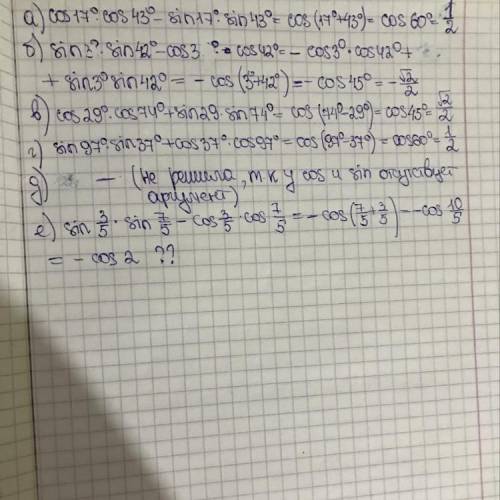 а) cos17°·cos43° - sin17°·sin43° = cos(17°+43°) = cos60° = 1/2
б) sin3°·sin42° - cos3°·cos42° = - cos3°·cos42° +
+ sin3° sin42° = - cos(3°+42°) = - cos45° = - √2/2
в) cos29°·cos74° + sin29·sin74° = cos(74°-29°) = cos45° = √2/2
г) sin97°·sin37° + cos37°·cos97° = cos(97°-37°) = cos60° = 1/2
д) — (не решила, т к у cos и sin отсутствует
аргумент)
е) sin 3/5 · sin 7/5 - cos 3/5 · cos 7/5 = - cos(7/5 + 3/5) = - cos 10/5
= - cos 2 ??